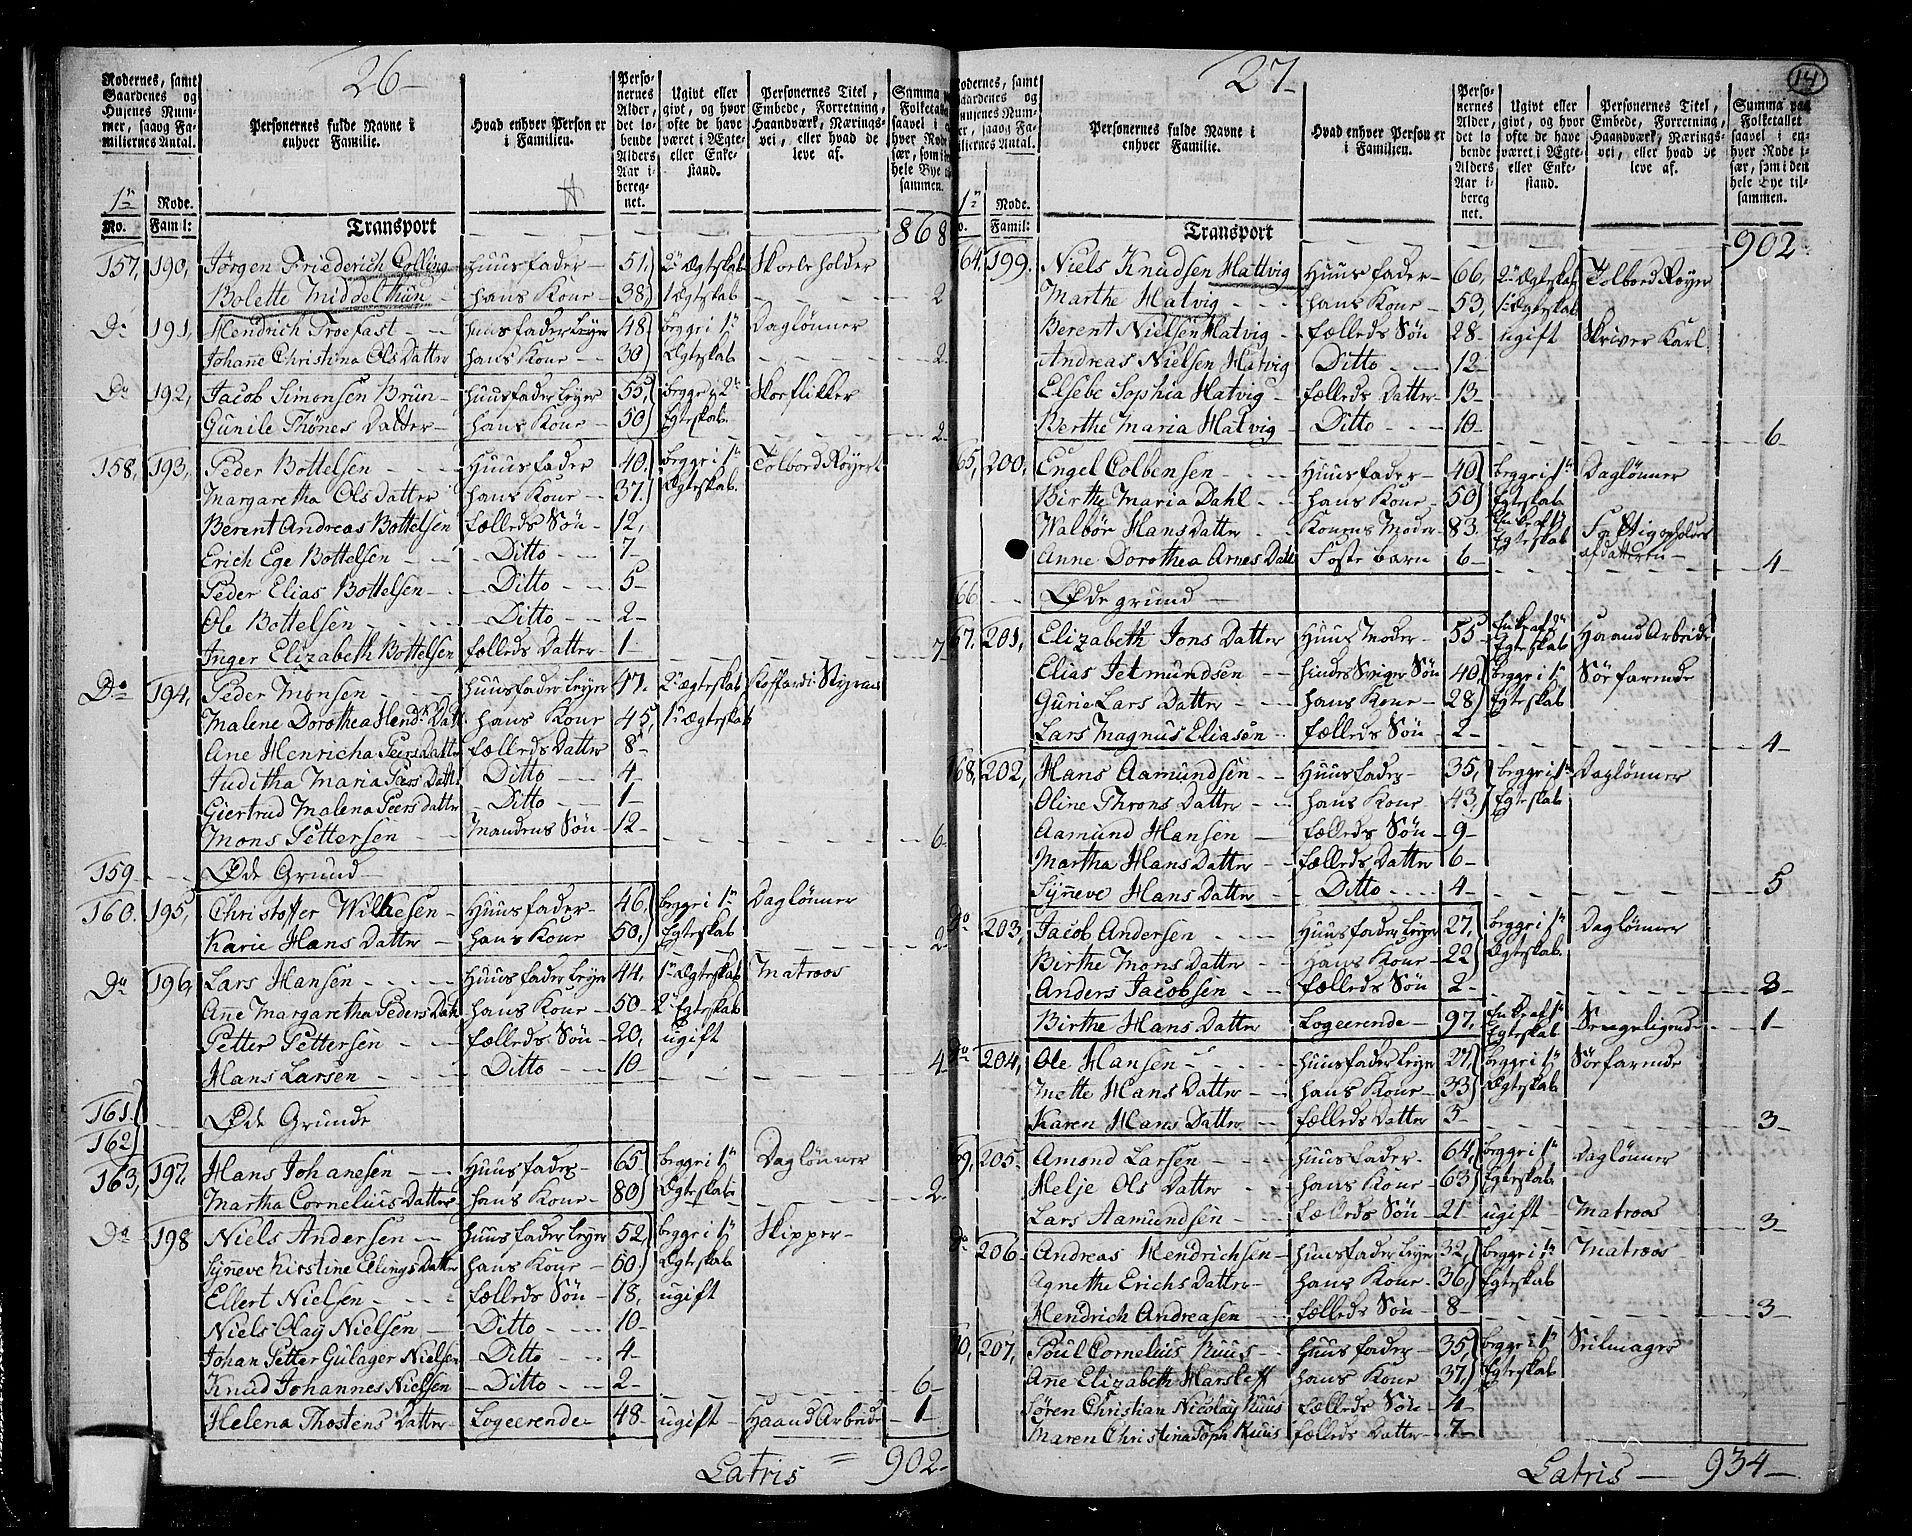 26
Rodernes, samt Gaardenes og Husenes Nummer, saavog Familiernes Antal.
Personernes fulde Navne i enhver Familie.
Hvad enhver Person er i Familien.
Personernes Alder, det lobende Alders Aar iberegnet.
Ugivt eller givt, og hvor ofte de have været i Ægte- eller Enkestand.
Personernes Titel, Embede, Forretning, Haandværk, Næringsvei, eller hvad de leve af.
1ste Rode.
No. Famil:
Transport 868
157, 190, Jørgen Friederich Colling Huusfader 51, 2 Ægteskab
Bolette Middelthun hans Kone 38 1 Ægteskab 2
Do 191, Hendrich Troefast huusfader Leyer 48 begge i 1 Daglønner
Johane Christina Ols Datter hans Kone 30 Ægteskab 2
Do 192, Jacob Simonsen Brun huusfader Leyer 55, begge i 2 Skoeflikker
Gunile Thønes Datter hans Kone 50 Egteskab 2
158, 193, Peder Bottelsen Huusfader 40, begge i 1
Margaretha Ols Datter hans Kone 37, Ægteskab
Berent Andreas Bottelsen fælleds Søn 12,
Erich Ege Bottelsen Ditto 7
Peder Elias Bottelsen Ditto 5
Ole Bottelsen Ditto 2
Inger Elizabeth Bottelsen fælleds Datter 1 7
Do 194, Peder Monsen huusfader Leyer 47, 2 Ægteskab
Malene Dorothea Hend: Datt hans Kone 45, 1 Ægteskab
Ane Henricha Peers Datter fælleds Datter 8
Juditha Maria Peers Datt Ditto 4
Giertrud Malena Peers datter Ditto 1
Mons Pettersen Mandens Søn 12 6
159 Øde Grund
160. 195, Christoffer Huusfader 46, begge i 1 Daglønner
Karie Hans Datter hans Kone 50, Egteskab 2
Do 196, Lars Hansen Huusfader Leyer 44, 1 Ægteskab Matroos
Ane Margaretha Peders Datt hans Kone 50 2 Egteskab
Petter Pettersen fælleds Søn 20, ugift
Hans Larsen Ditto 10 4
161
162 Øde Grunde
163, 197, Hans Johanesen Huusfader 65 begge i 1 Daglønner
Martha Cornelius Datter hans Kone 80 Ægteskab 2
Do 198 Niels Andersen huusfader Leyer 52, begge i 1 Skipper
Syneve Kirstine Ellings Datter hans Kone 60 Ægteskab
Ellert Nielsen fælleds Søn 18, ugift
Niels Olag Nielsen Ditto 10
Johan Petter Gulager Nielsen Ditto 4
Knud Johannes Nielsen Ditto 2 6
Helena Thostens Datter Logeerende 48 ugift Haand Arbeide 1
Latris 902
27
14
Personernes fulde Navne i enhver Familie.
Hvad enhver Person er i Familien.
Personernes Alder, det lobende Alders Aar iberegnet.
Ugivt eller givt, og hvor ofte de have været i Ægte- eller Enkestand.
Personernes Titel, Embede, Forretning, Haandværk, Næringsvei, eller hvad de leve af.
Summa paa Folketallet saavel i enhver Rode især, som i den hele Bye tilsammen.
Rode.
Famil:
Transport 902
64, 199. Niels Knudsen Hattvig Huusfader 66, 2 Ægteskab
Marthe Hatvig hans Kone 53, 1 Ægteskab
Berent Nielsen Hatvig fælleds Søn 28 ugift Skriver Karl
Andreas Nielsen Hatvig Ditto 12
Elsebe Sophia Hatvig fælleds Datter 13
Berthe Maria Hatvig Ditto 10 6
65, 200, Engel Colbensen Huusfader 40 begge i 1 Daglønner
Birthe Maria Dahl hans Kone 50 Egteskab
Walbør Hans Datter Konens Moder 83 Enke af 1 Egteskab
Anne Dorothea Arnes Datt Foste barn 6 af datteren 4
66 Øde grund
67. 201, Elizabeth Jons Datter Huus Moder 55 Enke af 2 Egteskab Haand Arbeide
Elias Jetmundsen hendes Sviger Søn 40 begge i 1 Søefarende
Gurie Lars Datter hans Kone 28 Egteskab
Lars Magnus Eliasen fælleds Søn 2 4
68, 202, Hans Aamundsen Huusfader 35, begge i 1 Daglønner
Oline Throns Datter hans Kone 43, Egteskab
Aamund Hansen fælleds Søn 9
Martha Hans Datter fælleds Datter 6
Syneve Hans Datter Ditto 4 5
Do 203, Jacob Andersen Huusfader Leyer 27, begge i 1 Daglønner
Birthe Mons Datter hans Kone 22 Ægteskab
Anders Jacobsen fælleds Søn 2 3
Birthe Hans Datter Logeerende 97, Enke af 1 Egteskab Sengeliggende 1
Do 204, Ole Hansen huusfader Leyer 27 begge i 1 Søefarende
Mette Hans Datter hans Kone 33 Ægteskab
Karen Hans Datter fælleds Datter 3 3
69, 205. Amond Larsen huusfader 64, begge i 1 Daglønner
Helje Ols Datter hans Kone 63 Egteskab
Lars Aamundsen fælleds Søn 21 ugift Matroos 3
Do 206. Andreas Hendrichsen huusfader Leyer 32, begge i 1 Matroos
Agnethe Erichs Datter hans Kone 36 Egteskab
Hendrich Andreasen fælleds Søn 8 3
70, 207, Poul Cornelius Ruus huusfader 35, begge i 1 Seilmager
Ane Elizabeth Marsleff hans Kone 37, Egteskab
Søren Christian Nicolay Ruus fælleds Søn 4
Maren Christina Soph Ruus fælleds Datter 7
Latris 934